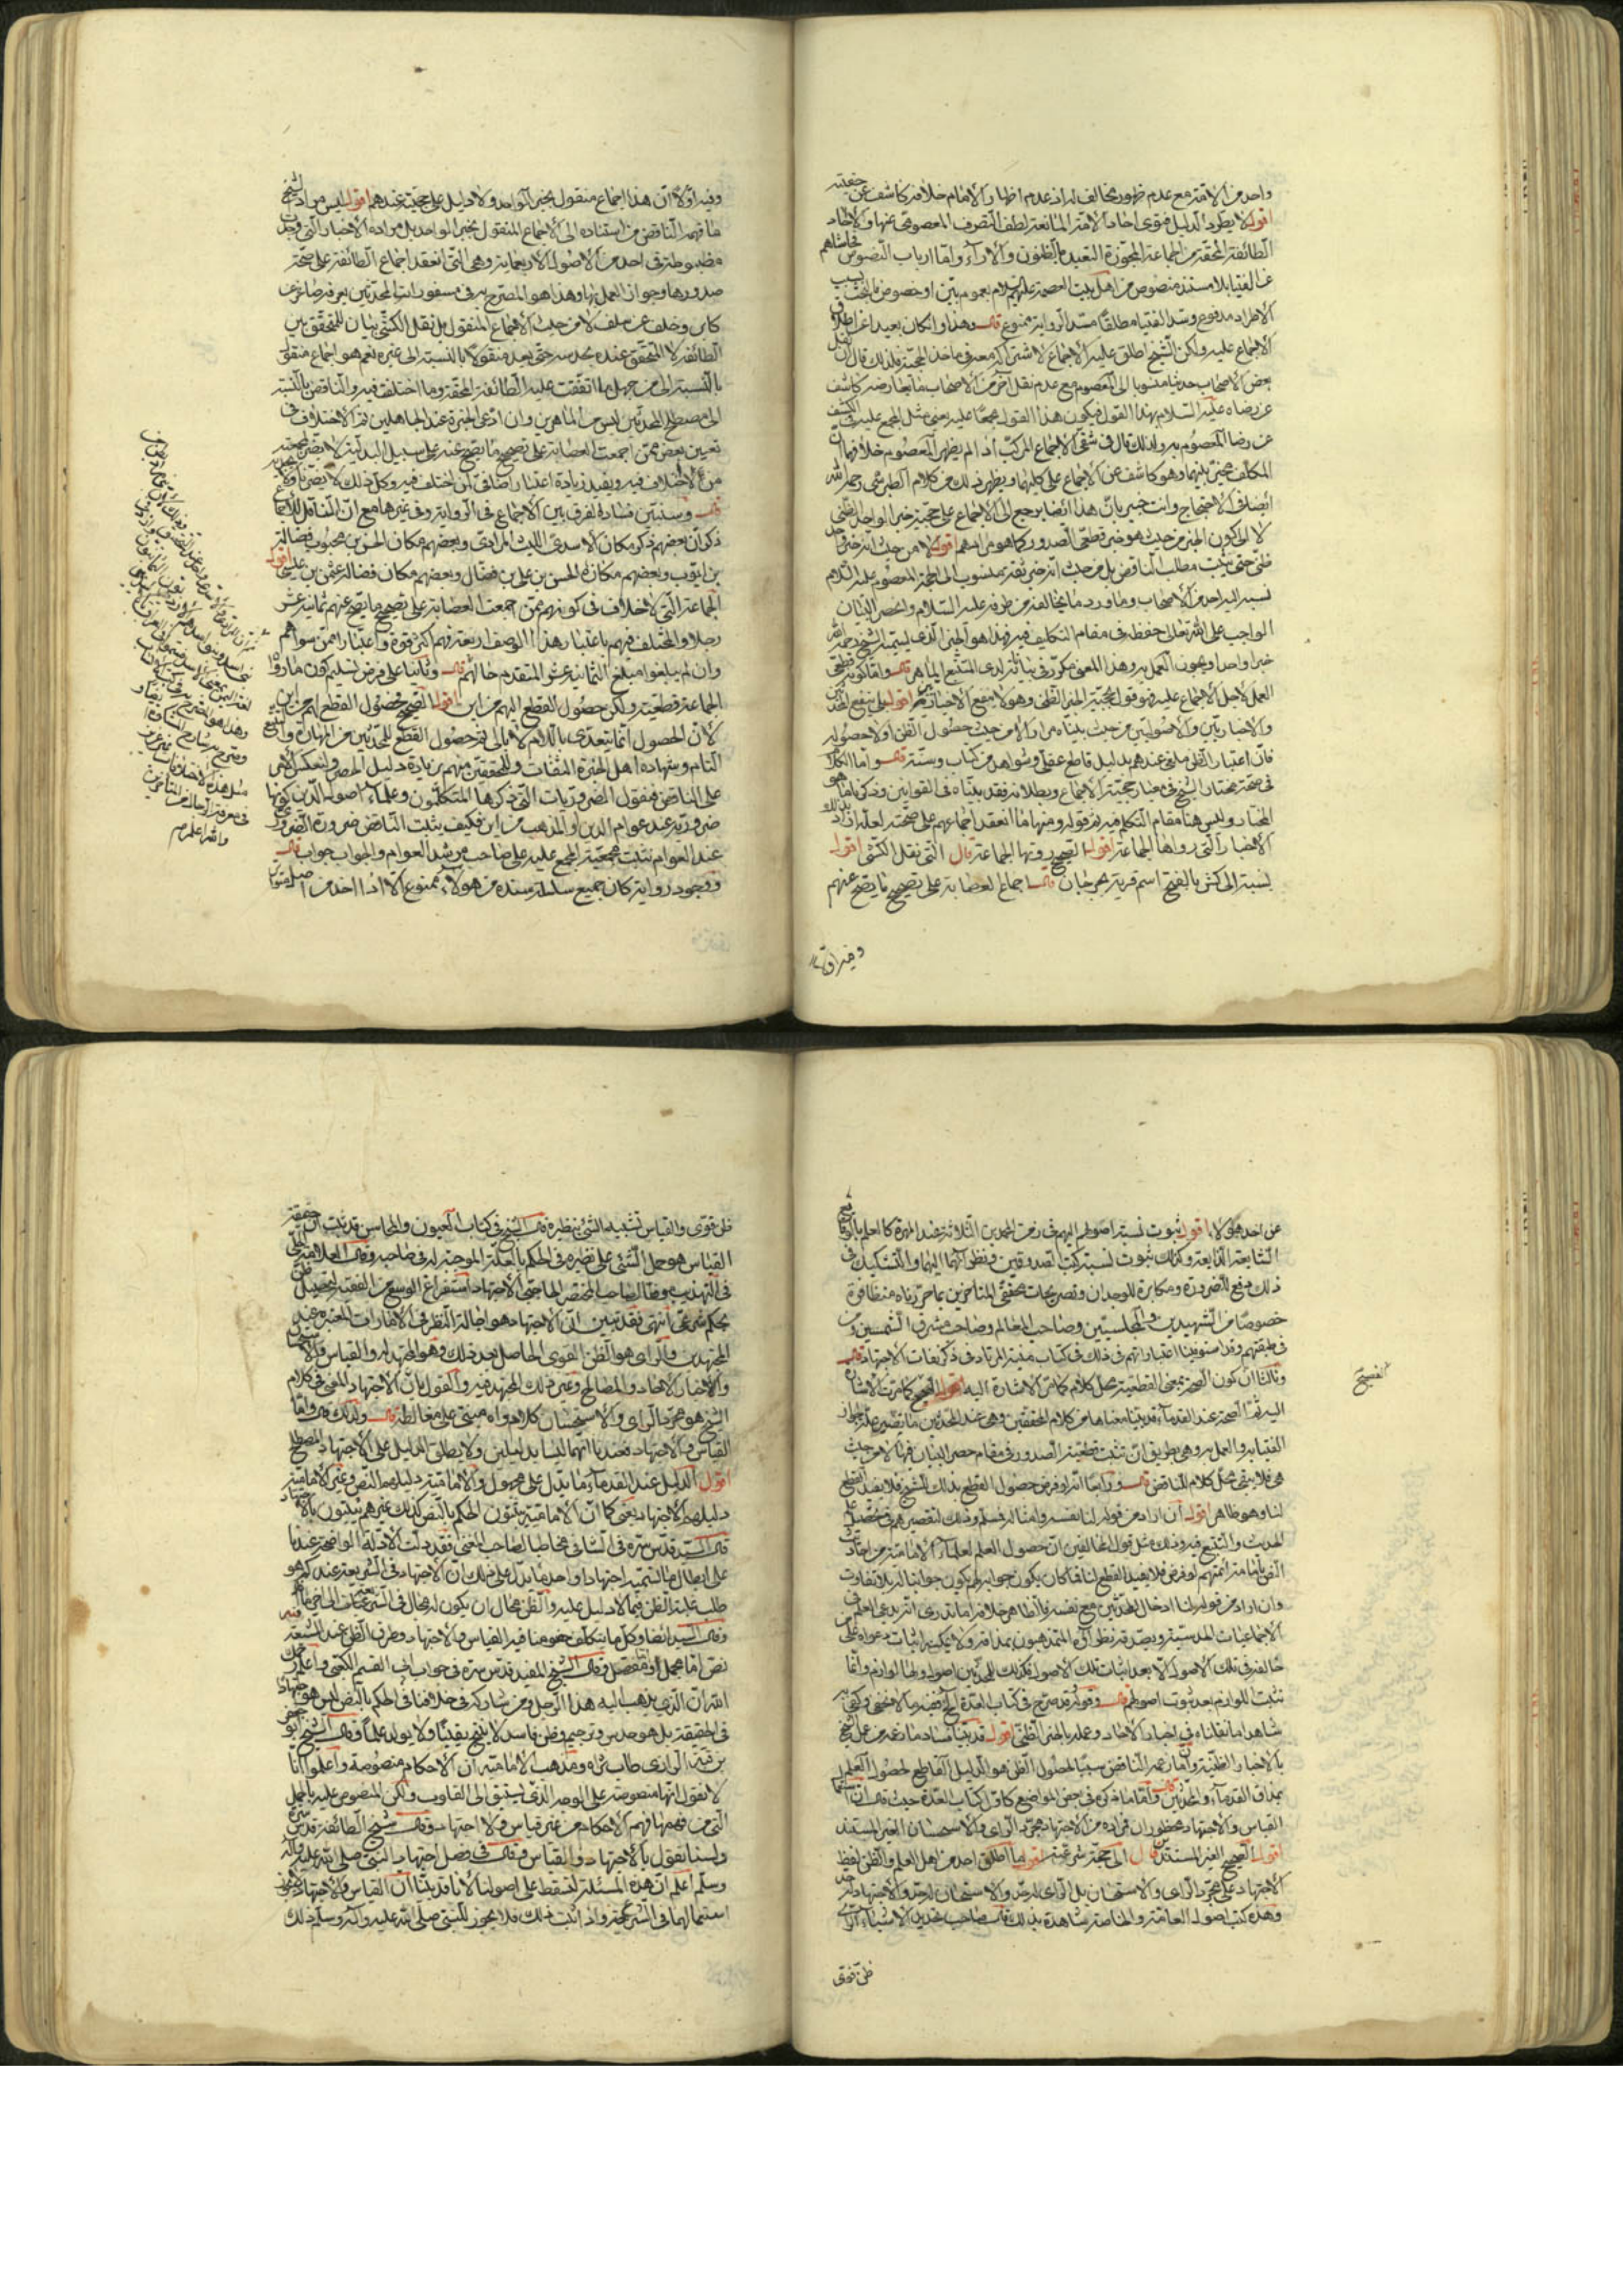 واحد من الامة مع عدم ظهور مخالف له اذ عدم اظهار الامام خلافه كاشف عن حقيته
اقول لا يطرد الدليل فتوى احاد الامة المانعة لطف التصرف المعصومى عنها ولا احاد
الطائفة المحقة من الجماعة المجوزة التعبد بالظنون والآراء واما ارباب النصوص فحاشاهم
عن الفتيا بلا مستند منصوص من اهل بيت العصمة عليهم السلام بعموم بين او خصوص
الاطراد مدفوع وسد الفتيا مطلقا مسد الرواية ممنوع قال وهذا وان كان بعيدا عن اطلاق
الاجماع عليه ولكن الشيخ اطلق عليه الاجماع لاشتراكه معه فى ماخذ الحجية فلذلك قال ان نقل
بعض الاصحاب حديثا منسوبا الى المعصوم مع عدم نقل آخر من الاصحاب ما يعارضه كاشف
عن رضاه عليه السلام بهذا القول فيكون هذا القول مجمعا عليه يعنى مثل المجمع عليه فى الكشف
عن رضا المعصوم به ولذلك قال فى شقى الاجماع المركب اذا لم يظهر المعصوم خلافهما ان
المكلف مخير بينهما وهو كاشف عن الاجماع على كليهما ويظهر ذلك من كلام الطبرسى رحمه الله
ايضا فى الاحتجاج وانت خبير بان هذا ايضا يرجع الى الاجماع على حجية خبر الواحد الظنى
لا الى كون الخبر من حيث هو خبر قطعى الصدور كما هو مرامهم اقول لا من حيث انه خبر واحد
ظنى حتى يثبت مطلب الناقض بل من حيث انه خبر ثقة منسوب الى الحجة المعصوم عليه السلام
نسبه اليه احد من الاصحاب وما ورد ما يخالفه من طرفه عليه السلام وانحصر البيان
الواجب على الله تعالى حفظه فى مقام التكليف فيه فهذا هو الخبر الذى يسميه الشيخ رحمه الله
خبرا واحدا ويجوز العمل به وهذا المعنى مكرر فى بياناته لدى المتتبع الماهر قال واما كونه قطعى
العمل لاجل الاجماع عليه فهو قول بحجية الخبر الظنى وهو لا ينفع الاخباريين اقول بلى ينفع المحدثين
والاخباريين والاصوليين من حيث بيناه مرارا لا من حيث حصول الظن او لا حصوله
فان اعتبار الظن ملغى عندهم بدليل قاطع عقلى وشواهد من كتاب وسنة قال واما الكلام
فى صحة مختار الشيخ فى معنى حجية الاجماع وبطلانه فقد بيناه فى القوانين وذكرنا ما هو
المختار وليس هنا مقام التكلم فيه ثم قوله ومنها ما انعقد اجماعهم على صحته لعله اراد بذلك
الاخبار التى رواها الجماعة اقول الصحيح روتها الجماعة قال التى نقل الكشى اقول
نسبة الى كش بالفتح اسم قرية بجرجان قال اجماع العصابة على تصحيح ما يصح عنهم
وفيه اولا
وفيه اولا ان هذا اجماع منقول بخبر الواحد ولا دليل على حجيته عندهم اقول ليس مراد الشيخ
ما فهمه الناقض من استناده الى الاجماع المنقول بخبر الواحد بل مراده الاخبار التى وجدت
مضبوطة فى احد من الاصول الاربعمائة وهى التى انعقد اجماع الطائفة على صحة
صدورها وجواز العمل بها وهذا هو المصرح به فى مسفورات المحدثين يعرفه صاغر عن
كابر وخلف عن سلف لا من حيث الاجماع المنقول بل نقل الكشى بيان للمتحقق بين
الطائفة لا المتحقق عنده بحدسه حتى يعد منقولا بالنسبة الى غيره نعم هو اجماع منقول
بالنسبة الى من جهل بما اتفقت عليه الطائفة المحقة وما اختلفت فيه والناقض بالنسبة
الى مصطلح المحدثين ليس من الماهرين وان ادعى الخبرة عند الجاهلين ثم الاختلاف فى
تعيين بعض ممن اجمعت العصابة على تصحيح ما يصح عنه على سبيل البدلية لا يضر
من لا اختلاف فيه ويفيد زيادة اعتبار اضافى لمن اختلف فيه وكل ذلك لا يضرنا
قال وسنبين فساد الفرق بين الاجماع فى الرواية وفى غيرها مع ان الناقل للاجماع
ذكر ان بعضهم ذكر مكان الاسدى الليث المرادى وبعضهم مكان الحسن بن محبوب فضالة
بن ايوب وبعضهم مكانه الحسن بن على بن فضال وبعضهم مكان فضالة عثمن بن عيسى اقول
الجماعة التى لا خلاف فى كونهم ممن اجمعت العصابة على تصحيح ما يصح عنهم ثمانية عشر
رجلا والمختلف فيهم باعتبار هذا الوصف اربعة فهم اكثر قوة واعتبارا ممن سواهم
وان لم يبلغوا مبلغ الثمانية عشر المتقدم حالهم قال وثانيا على فرض تسليم كون ما رووا
الجماعة قطعية ولكن حصول القطع اليهم من اين اقول الصحيح حصول القطع لهم من اين
لان الحصول انما يتعدى باللام لا بالى ثم حصول القطع للمحدثين من المهارة والتتبع
التام وشهادة اهل الخبرة الثقات وللمحققين منهم بزيادة دليل الحصر وانعكس الامر
على الناقض فنقول الضروريات التى ذكرها المتكلمون وعلماء اصول الدين كونها
ضرورية عند عوام الدين او المذهب من اين فكيف يثبت الناقض ضرورة الضرورى
عند العوام يثبت حجية المجمع عليه على صاحب مرشد العوام والجواب جواب قال
ووجود رواية كان جميع سلسلة سنده من هولاء ممنوع الا اذا اخذ من اصل متواتر
والله اعلم
عن احد هولاء اقول ثبوت نسبة اصولهم اليهم فى زمن المحمدين الثلاثة عند المهرة كالعلم بالوقائع
الشايعة الذايعة وكذلك ثبوت نسبة كتب الصدوقين ونظرائهما اليهما والتشكيك فى
ذلك دفع للضرورة ومكابرة للوجدان وتصريحات محققى المتاخرين بما حررناه متظافرة
خصوصا من الشهيدين والمجلسيين وصاحب المعالم وصاحب مشرق الشمسين ومن
فى طبقتهم وقد استوفينا اعتباراتهم فى ذلك فى كتاب منية المرتاد فى ذكر نفاة الاجتهاد قال
وثالثا ان كون الصحة بمعنى القطعية محل كلام كما مر الاشارة اليه اقول الصحيح كما مرت الاشارة
اليه ثم الصحة عند القدماء قد بينا معناها من كلام المحققين وهى عند المحدثين ما تقتضى علة جواز
الفتيا به والعمل به وهى بطريق ان تثبت قطعية الصدور فى مقام حصر البيان فيها لا من حيث
هى فلا يبقى محل كلام للناقض قال ورابعا انه لو فرض حصول القطع بذلك للشيخ فلا يفيد القطع
لنا وهو ظاهر اقول ان اراد من قوله لنا نفسه وامثاله فمسلم وذلك لتقصيرهم فى تحصيل علم
الحديث والتتبع فيه وذلك مثل قول المخالفين ان حصول العلم لعلماء الامامية من احاديث
النص بامامة ائمتهم لو فرض فلا يفيد القطع لنا فما كان يكون جوابه لهم يكون جوابنا له بلا تفاوت
وان اراد من قوله لنا ادخال المحدثين مع نفسه فالظاهر خلافه اما تدرى انه يدعى العلم فى
الاجماعيات المدرسية ويصدقه نظراؤه المتمذهبون بمذاقه ولا يمكنه اثبات دعواه على
مخالفه فى تلك الاصول الا بعد اثبات تلك الاصول فكذلك للمحدثين اصول ولها لوازم وانما
تثبت اللوازم بعد ثبوت اصولهم قال وقوله قد صرح فى كتاب العدة الخ فيه ما لا يخفى وكفى به
شاهدا ما نقلناه فى اخبار الاحاد وعمله بالخبر الظنى اقول قد بينا فساد ما زعمه من عمل الشيخ
بالاخبار الظنية وان ما زعمه الناقض سببا لحصول الظن هو الدليل القاطع لحصول العلم
بمذاق القدماء والمحدثين قال واما ما ذكره فى بعض المواضع كاول كتاب العدة حيث قال ان
القياس والاجتهاد محظوران فمراده من الاجتهاد مجرد الراى والاستحسان الغير المستند
اقول الصحيح الغير المستندين قال الى حجة شرعية اقول ما اطلق احد من اهل العلم والظن لفظ
الاجتهاد على مجرد الراى والاستحسان بل الراى له حد والاستحسان له حد والاجتهاد له حد
وهذه كتب اصول العامة والخاصة شاهدة بذلك قال صاحب تحديد الاشياء الراى
ظن قوى
ظن قوى والقياس تشبيه الشئ بنظيره قال الشيخ فى كتاب العيون والمحاسن قد ثبت ان حقيقة
القياس هو حمل الشئ على نظيره فى الحكم بالعلة الموجبة له فى صاحبه وقال العلامة الحلى
فى التهذيب موفقا لصاحب المختصر الحاجبى الاجتهاد استفراغ الوسع من الفقيه لتحصيل ظن
بحكم شرعى انتهى فقد تبين ان الاجتهاد هو اجالة النظر فى الامارات المعتبرة عند
المجتهدين والراى هو الظن القوى الحاصل بعد ذلك وهو المجتهد له والقياس والاستحسان
والاخبار الاحاد والمصالح وغير ذلك المجتهد فيه والقول بان الاجتهاد المنفى فى كلام
الشيخ هو مجرد الراى والاستحسان كلام واه مبنى على مغالطة قال ولذلك قال واما
القياس والاجتهاد فعندنا انهما ليسا بدليلين ولا يطلق الدليل على الاجتهاد المصطلح
اقول الدليل عند القدماء ما يدل على مجهول والامامية دليلهم النص وغير الامامية
دليلهم الاجتهاد يعنى كما ان الامامية يثبتون الحكم بالنص كذلك غيرهم يثبتون بالاجتهاد
قال السيد قدس سره فى الشافى مخاطبا لصاحب المغنى فقد دلت الادلة الواضحة عندنا
على ابطال ما تسميه اجتهادا واحد ما يدل على ذلك ان الاجتهاد فى الشريعة عندكم هو
طلب غلبة الظن فيما لا دليل عليه والظن محال ان يكون له مجال فى الشريعة
وقال السيد ايضا وكل ما يتكلف خصومنا فيه القياس والاجتهاد وطرق الظن عند الشيعة فيه
نص اما مجمل او مفصل وقال الشيخ المفيد قدس سره فى جواب ابى القسم الكعبى واعلم رحمك
الله ان الذى يذهب اليه هذا الرجل ومن شاركه فى خلافنا فى الحكم بالنص ليس هو اجتهاد
فى الحقيقة بل هو حدس وترجيم وظن فاسد لا ينتج يقينا ولا يولد علما وقال الشيخ ابو جعفر
بن قبة الرازى طاب ثراه ومذهب الامامية ان الاحكام منصوصة واعلموا انا
لا نقول انها منصوصة على الوجه الذى يسبق الى القلوب ولكن المنصوص عليه بالجمل
التى من فهمها فهم الاحكام من غير قياس ولا اجتهاد وقال شيخ الطائفة قدس سره
ولسنا نقول بالاجتهاد والقياس وقال فى فصل اجتهاد النبى صلى الله عليه وآله
وسلم اعلم ان هذه المسئلة تسقط على اصولنا لانا قد بينا ان القياس والاجتهاد لا يجوز
استعمالهما فى الشرع واذا ثبت ذلك فلا يجوز للنبى صلى الله عليه وآله وسلم ذلك